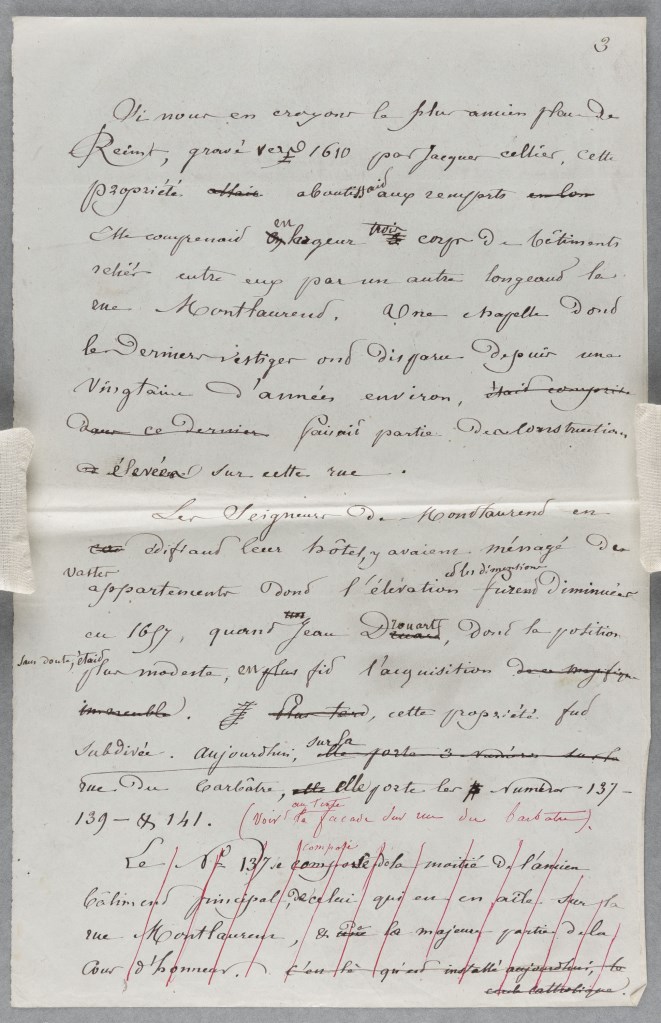 3
Si nous en croyons le plus ancien plan de
Reims, gravé vers 1610 par Jacques Cellier, cette
propriété allait aboutissait aux remparts en lon
Elle comprenait en largeur trois corps de bâtiments
reliés entre eux par un autre longeant la
rue Montlaurent. Une chapelle dont
les derniers vestiges ont disparu depuis une
vingtaine d'années environ, était comprise
dans ce dernier faisait partie des constructions
élevées sur cette rue.
Les Seigneurs de Montlaurent en
édifiant leur hôtel, y avaient ménagé de
vastes appartements dont l'élévation et les dimensions furent diminuées
en 1657, quand Jean Drouart, dont la position
sans doute, était plus modeste, en fit l'acquisition de ce magnifique
immeuble. Plus tard, cette propriété fut
subdivée. aujourdhui, sur la elle porte 3 numéros sur la
rue du Barbâtre, elle porte les Numéros 137-
139 - & 141. (Voir la façade sur rue du Barbatre).
Le No 137 se compose de la moitié de l'ancien
bâtiment principal, de celui qui est en aîle sur la
rue Montlaurent, & la majeure partie de la
Cour d'honneur. c'est là qu'est installé aujourdhui, le
cercle catholique.